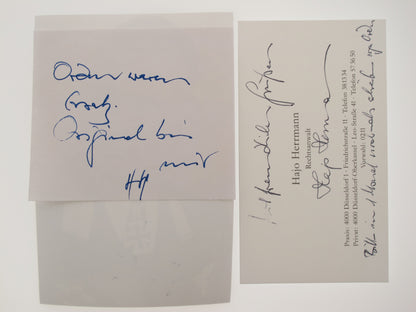 Orden waren
Ersatz.
Original bei
mir
HH
Mit freundlichen Grüßen
Hajo Herrmann
Rechtsanwalt
Praxis: 4000 Düsseldorf 1 · Friedrichstraße 11 · Telefon 38 13 34
Privat: 4000 Düsseldorf-Oberkassel · Leo-Straße 41 · Telefon 57 36 50
Vorwahl: 0211
Bitte in 1 Monat nochmals